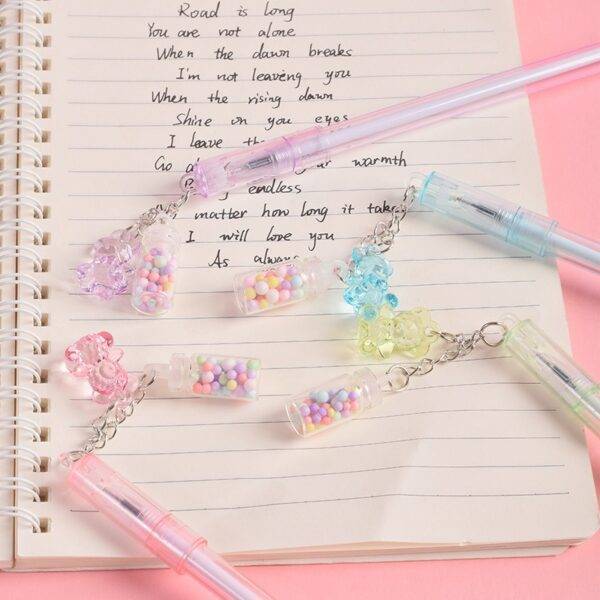 Road is long
You are not alone
When the dawn breaks
I'm not leaveng you
When the rising dawn
Shine on you eyes
I leave
Go warmth
endless
matter how long it take
I will love you
As always